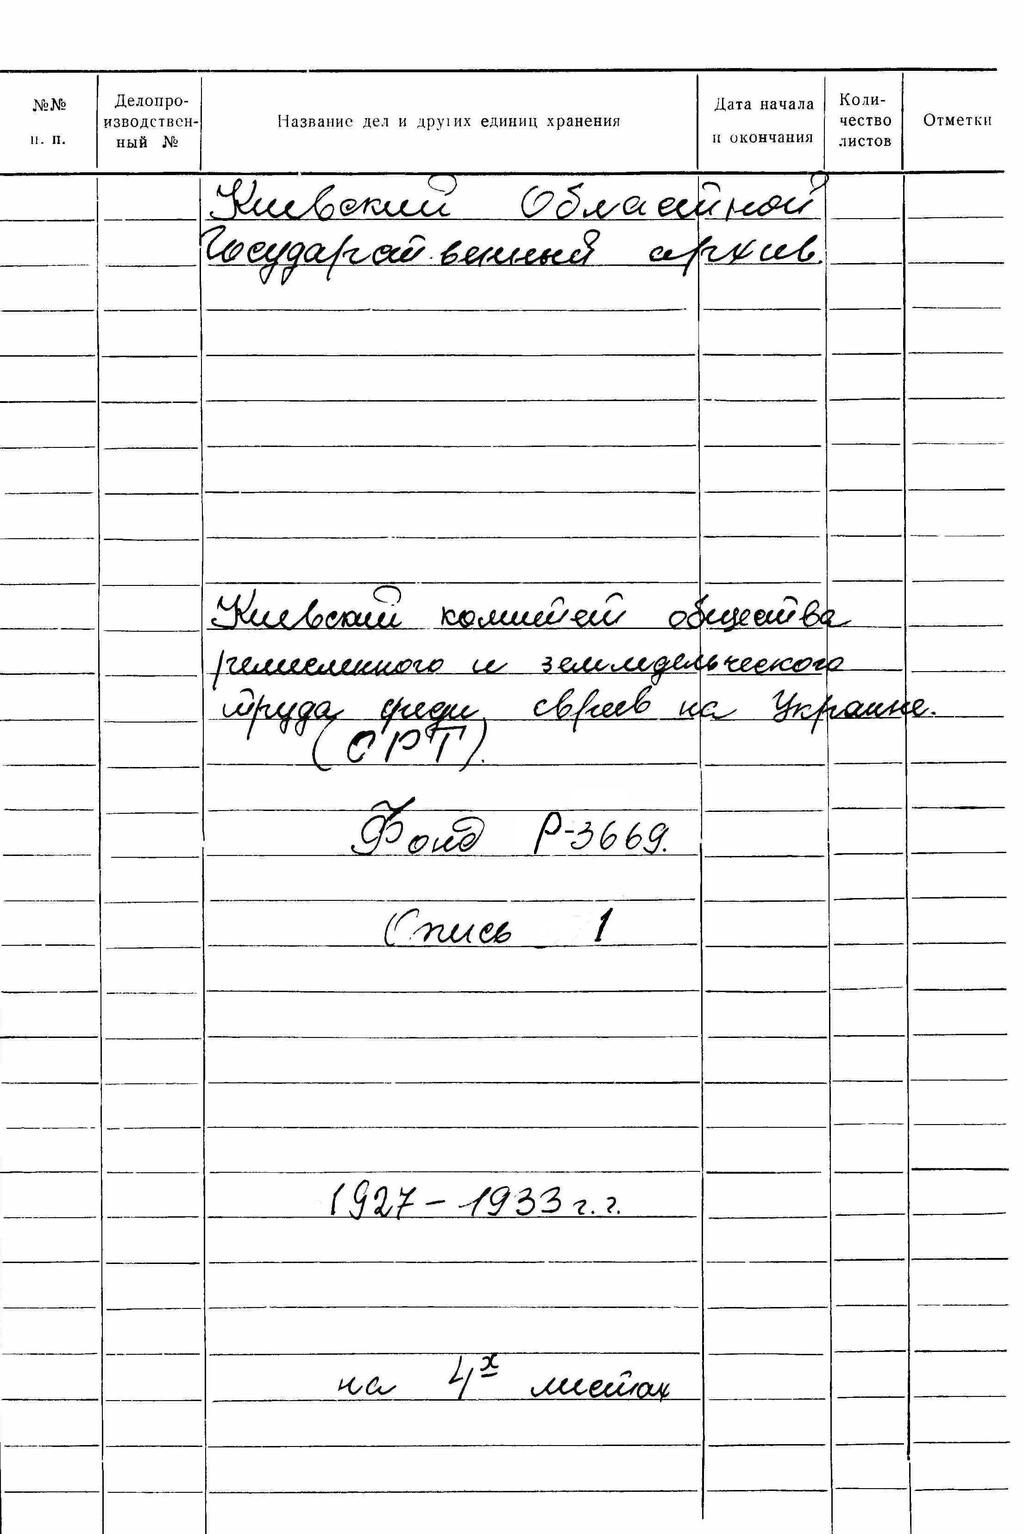 №№ п. п.
Делопро-
изводствен-
ный №
Название дел и других единиц хранения
Дата начала
и окончания
Коли-
чество
листов
Отметки
Киевский Областной
Государственный архив.
Киевский комитет общества
ремесленного и земледельческого
труда среди евреев на Украине.
(ОРТ).
Фонд Р-3669.
Опись 1
1927-1933 г.г.
на 4х листах